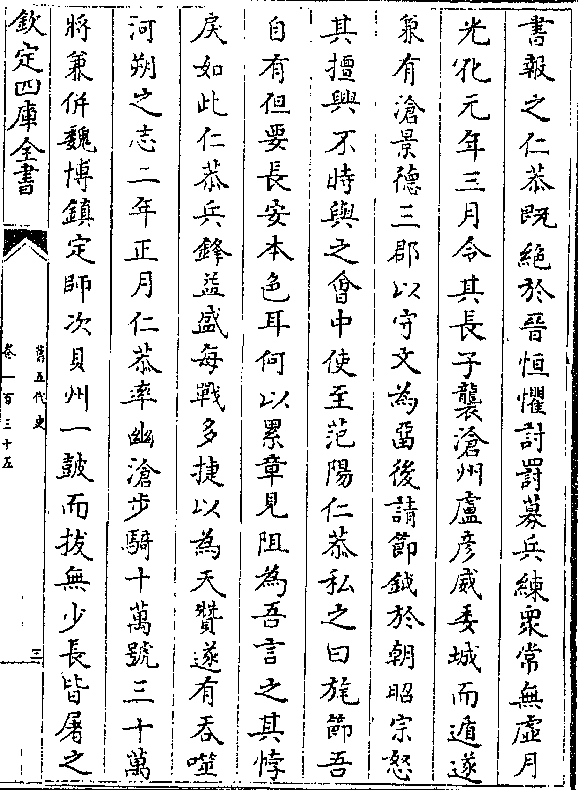 書報之仁恭既絶於晉恒懼討罰募兵練衆常無虚月
光化元年三月令其長子襲滄州盧彦威委城而遁遂
兼有滄景徳三郡以守文為留後請節鉞於朝昭宗怒
其擅興不時與之會中使至范陽仁恭私之曰旄節吾
自有但要長安本色耳何以累章見阻為吾言之其悖
戾如此仁恭兵鋒益盛每戰多捷以為天贊遂有吞噬
河朔之志二年正月仁恭率幽滄步騎十萬號三十萬
將兼併魏博鎮定師次貝州一鼓而拔無少長皆屠之
欽定四庫全書
舊五代史
卷一百三十五
三